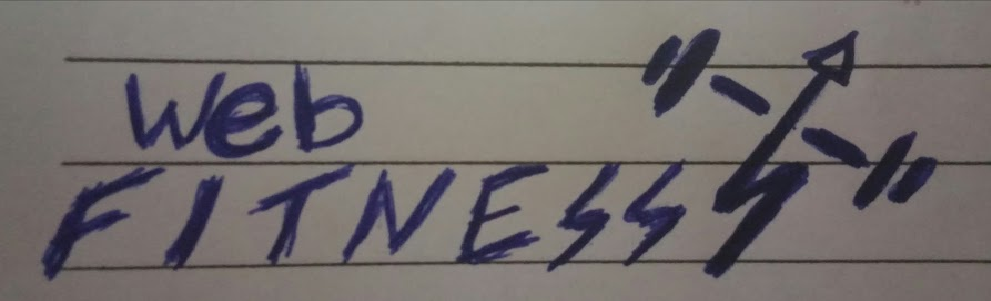 Web
FITNESS